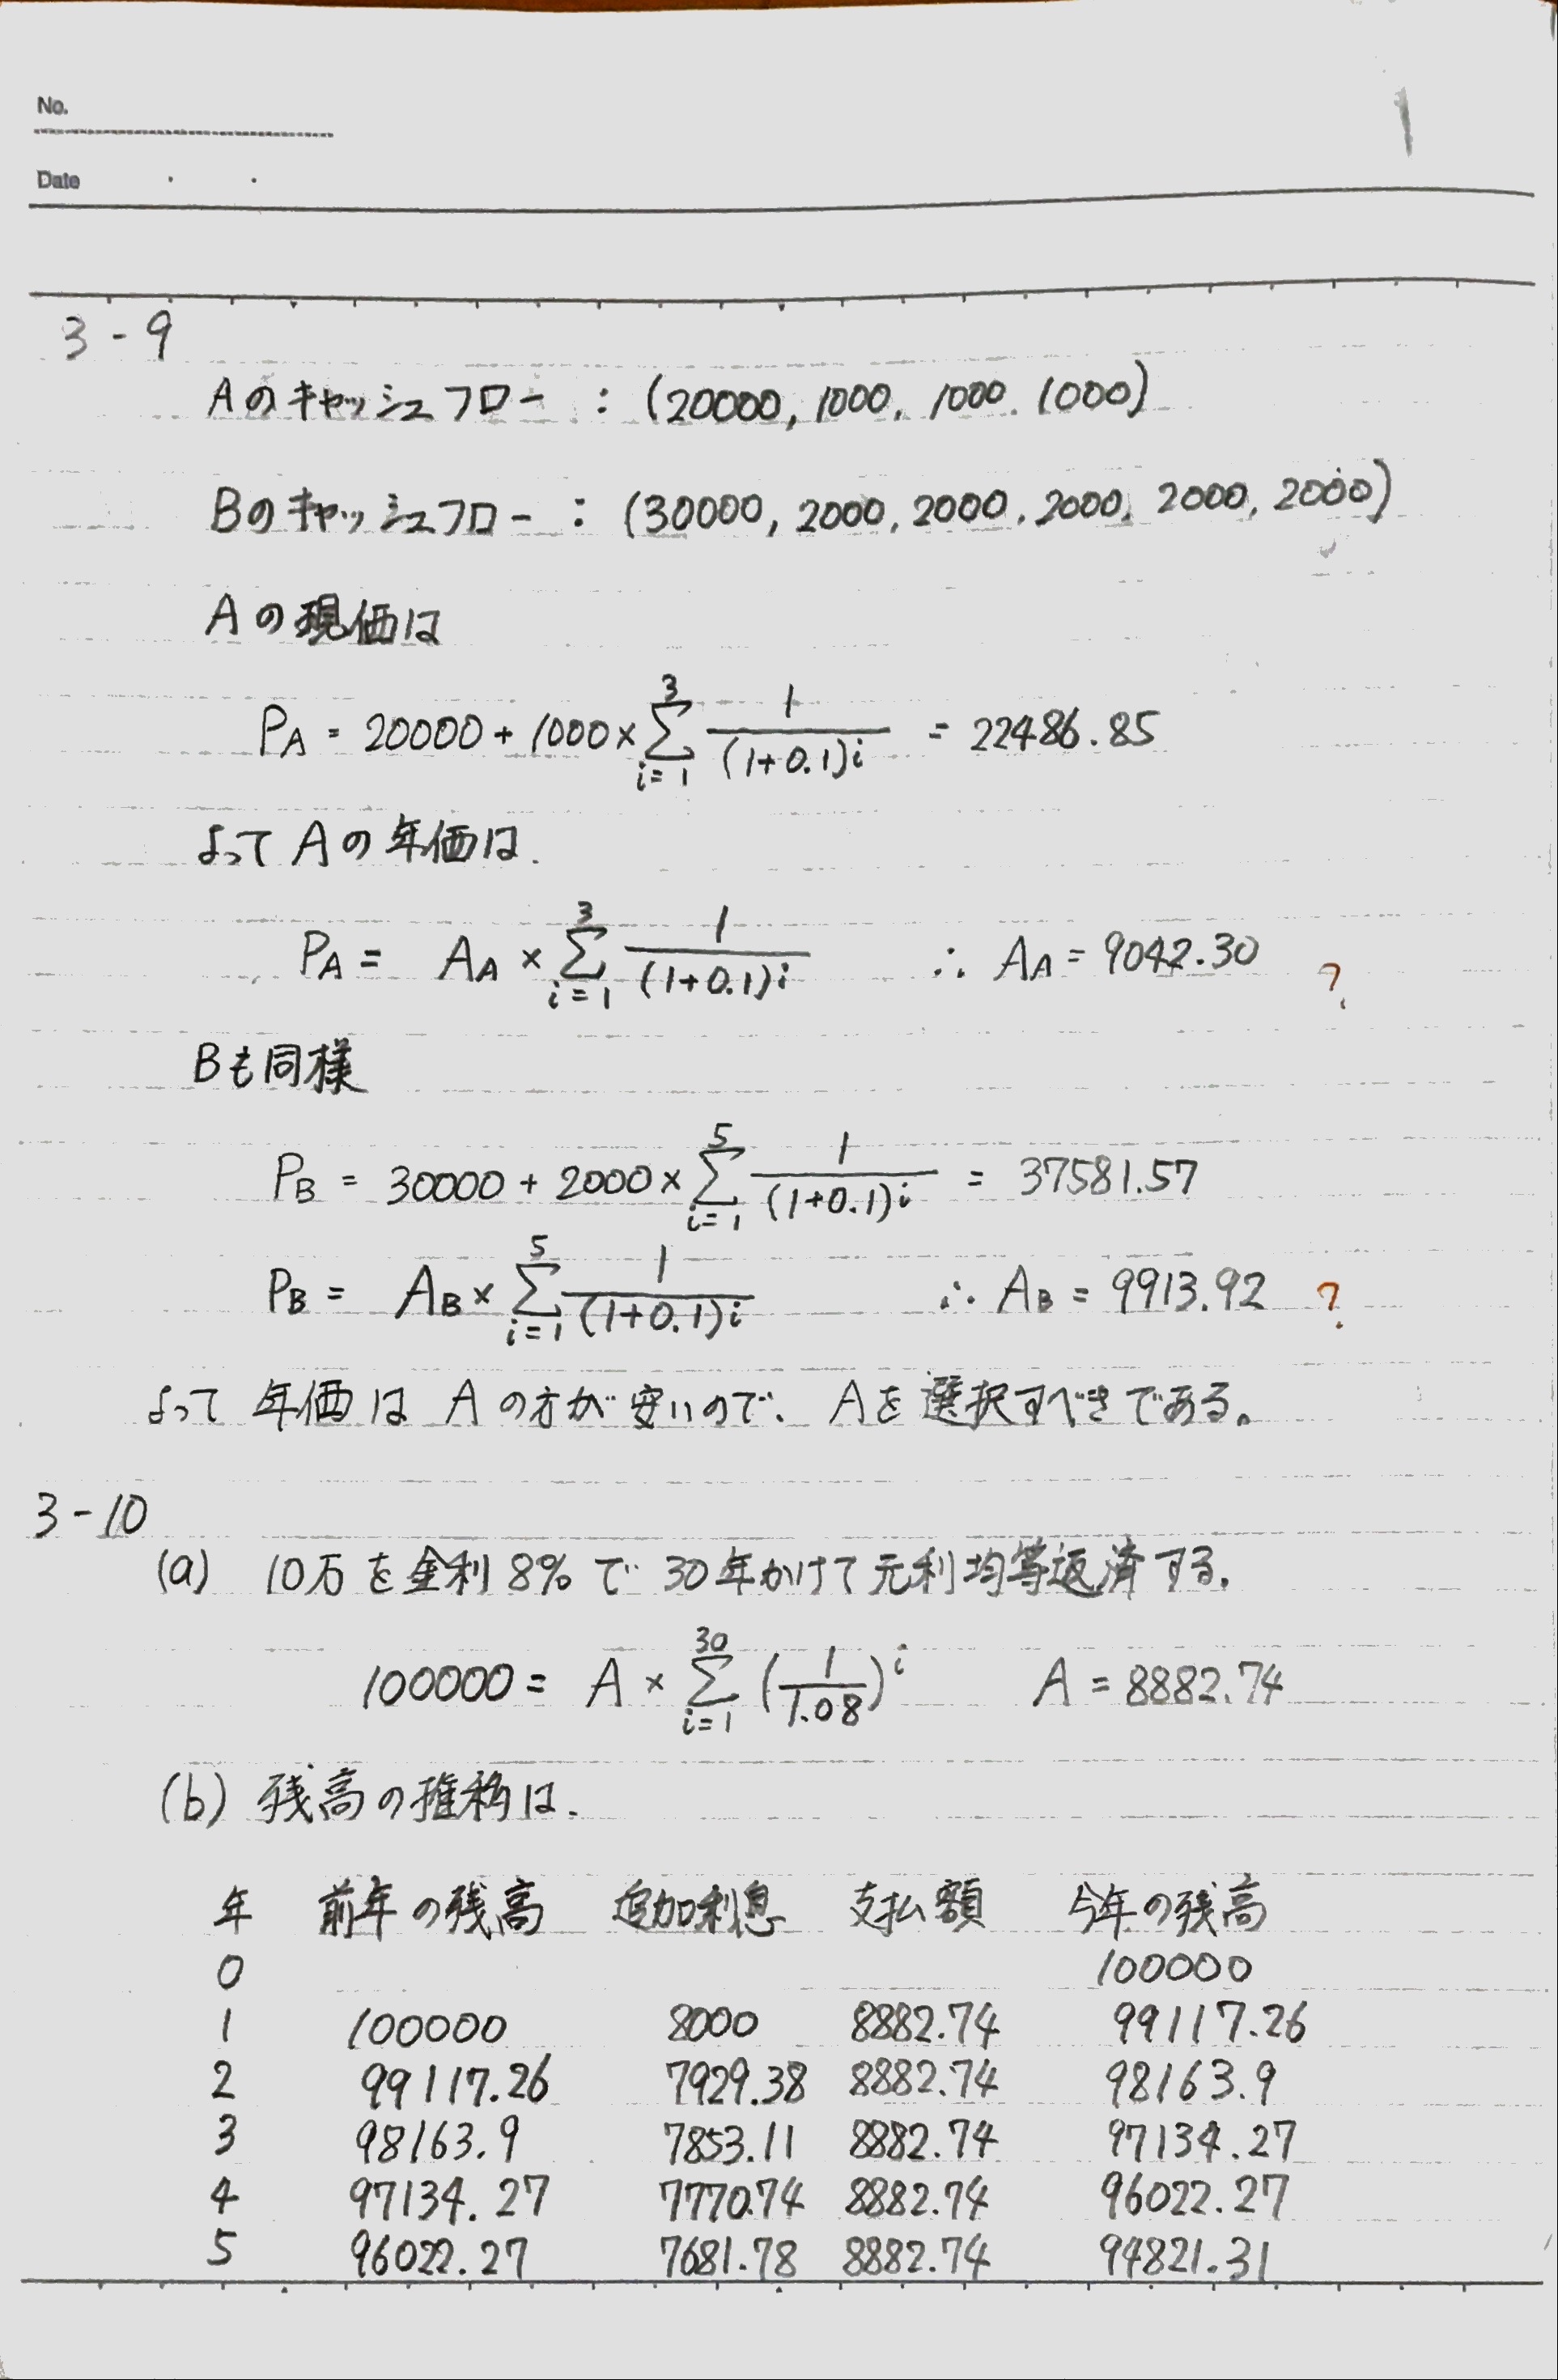 No.
Date
3-9
Aのキャッシュフロー : (20000, 1000, 1000. 1000)
Bのキャッシュフロー : (30000, 2000, 2000, 2000, 2000, 2000)
Aの現価は
P_A = 20000 + 1000 × Σ_{i=1}^{3} 1/(1+0.1)^i = 22486.85
よって Aの年価は.
P_A = A_A × Σ_{i=1}^{3} 1/(1+0.1)^i ∴ A_A = 9042.30 ?
Bも同様
P_B = 30000 + 2000 × Σ_{i=1}^{5} 1/(1+0.1)^i = 37581.57
P_B = A_B × Σ_{i=1}^{5} 1/(1+0.1)^i ∴ A_B = 9913.92 ?
よって 年価は Aの方が安いので、Aを選択すべきである。
3-10
(a) 10万を金利8%で30年かけて元利均等返済する.
100000 = A × Σ_{i=1}^{30} (1/1.08)^i A = 8882.74
(b) 残高の推移は.
年 前年の残高 追加利息 支払額 今年の残高
0 100000
1 100000 8000 8882.74 99117.26
2 99117.26 7929.38 8882.74 98163.9
3 98163.9 7853.11 8882.74 97134.27
4 97134.27 7770.74 8882.74 96022.27
5 96022.27 7681.78 8882.74 94821.31